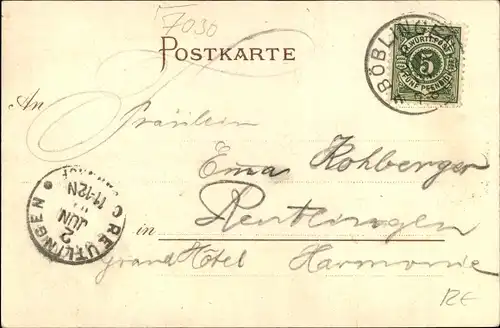 7030
POSTKARTE
BÖBLINGE
K. WÜRTT. POST
5
FÜNF PFENNIG
An
Fräulein
Emma Kohberger
in Reutlingen
Grand Hôtel Harmonie
REUTLINGEN
2
JUN
11-12N
RE